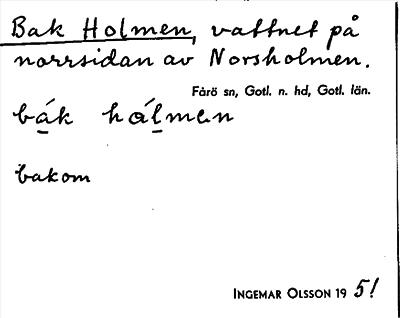 Bak Holmen, vattnet på
norrsidan av Norsholmen.
Fårö sn, Gotl. n. hd, Gotl. län.
bák hålmen
bakom
INGEMAR OLSSON 19 51